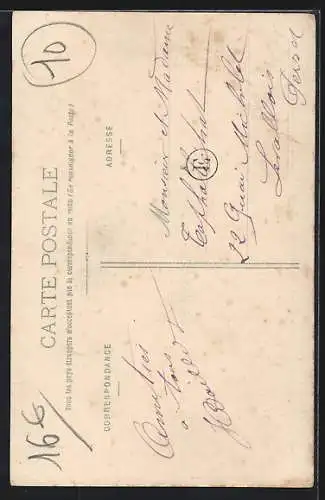 10
16 €
CARTE POSTALE
Tous les pays étrangers n'acceptent pas la correspondance au recto (Se renseigner à la Poste)
CORRESPONDANCE
ADRESSE
Amitiés
à tous
Monsieur et Madame
22 Quai Michelet
Levallois
Perret
E